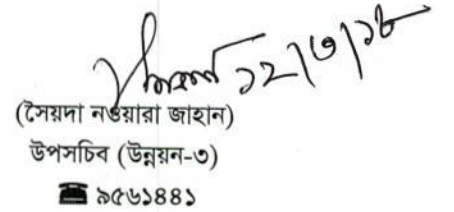 ১২/৩/১৮
(সৈয়দা নওয়ারা জাহান)
উপসচিব (উন্নয়ন-৩)
☎ ৯৫৬১৪৪১